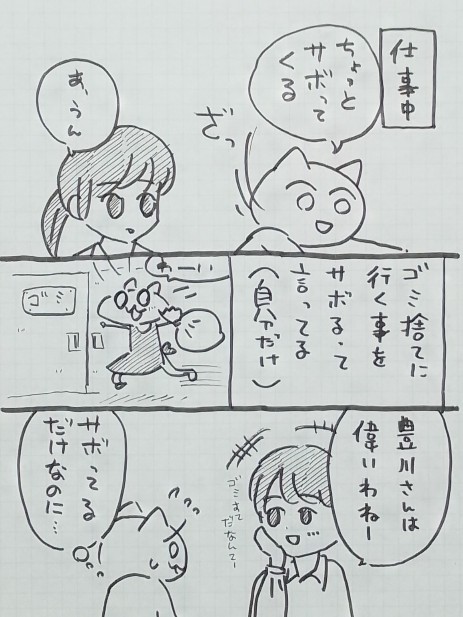 仕事中
ちょっと
サボって
くる
ざっ
あ、うん
ゴミ捨てに
行く事を
サボるって
言ってる
(自分だけ)
わーい
ゴミ
豊川さんは
偉いわねー
ゴミすて
だなんてー
サボってる
だけなのに…